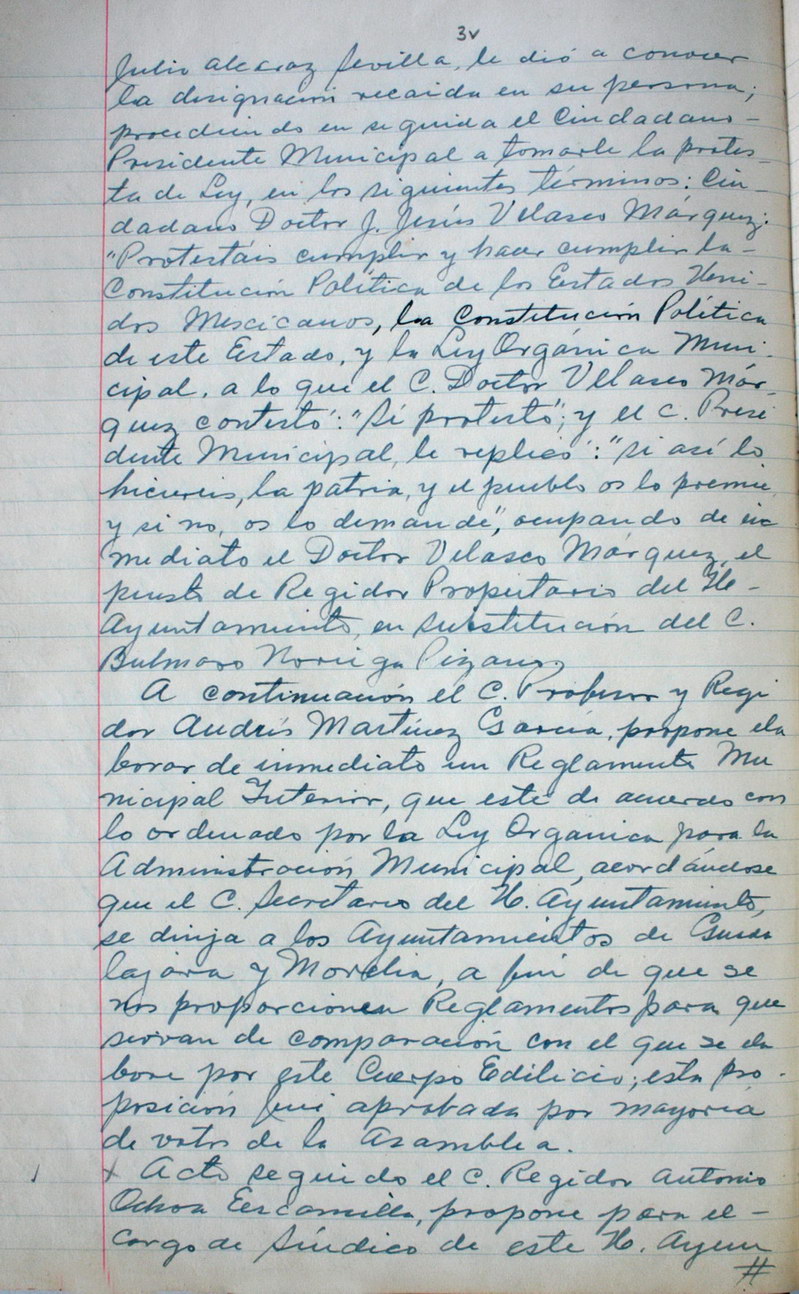 3v
Julio Alcaraz Sevilla, le dió a conocer
la designación recaida en su persona;
procediendo en seguida el Ciudadano-
Presidente Municipal a tomarle la protes-
ta de Ley, en los siguientes términos: Ciu-
dadano Doctor J. Jesús Velasco Márquez:
"Protestáis cumplir y hacer cumplir la-
Constitución Política de los Estados Uni-
dos Mexicanos, la Constitución Política
de este Estado, y la Ley Orgánica Muni-
cipal, a lo que el C. Doctor Velasco Már-
quez contestó: "Sí protesto"; y el C. Presi
dente Municipal, le replicó: "si así lo
hiciereis, la patria, y el pueblo os lo premie
y si no, os lo demande", ocupando de in
mediato el Doctor Velasco Márquez, el
puesto de Regidor Propietario del H-
Ayuntamiento, en substitución del C.
Bulmaro Noriega Pizano,
A continuación el C. Profesor y Regi
dor Andrés Martínez García, propone ela
borar de inmediato un Reglamento Mu
nicipal Interior, que esté de acuerdo con
lo ordenado por la Ley Organica para la
Administración Municipal, acordándose
que el C. Secretario del H. Ayuntamiento,
se dirija a los Ayuntamientos de Guada
lajara y Morelia, a fin de que se
nos proporcionen Reglamentos para que
sirvan de comparación con el que se ela
bore por este Cuerpo Edilicio; esta pro-
posición fué aprobada por mayoría
de votos de la Asamblea.
Acto seguido el C. Regidor Antonio
Ochoa Escamilla, propone para el-
cargo de Síndico de este H. Ayun
#